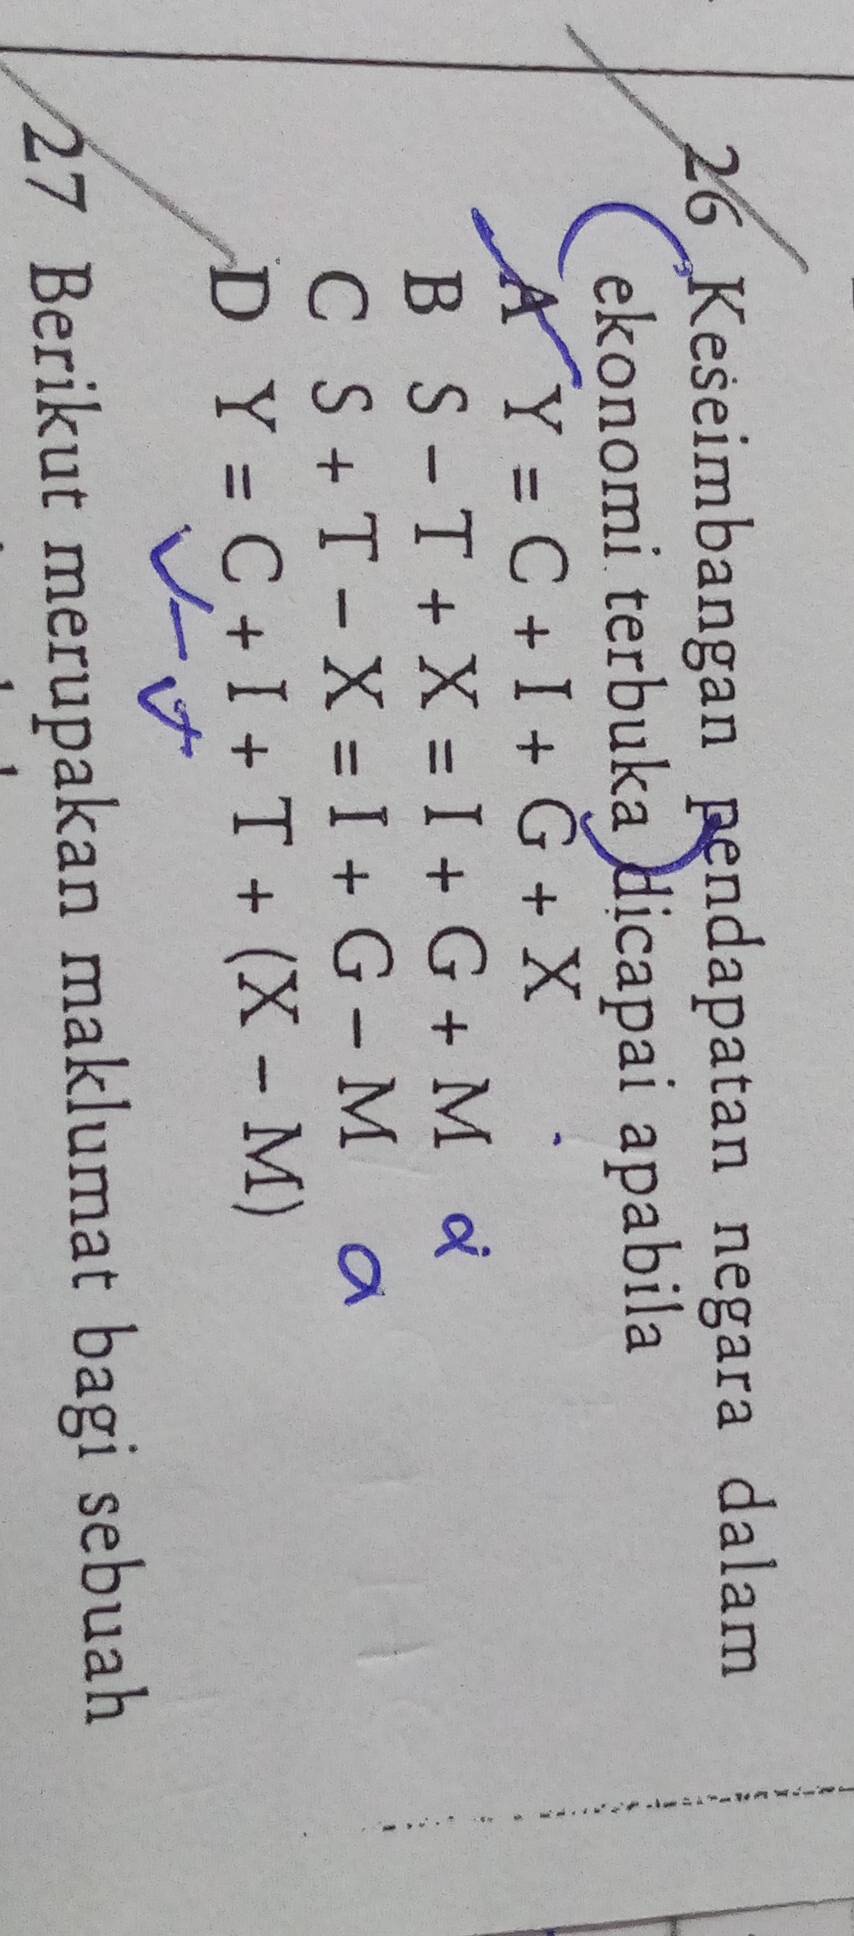 26 Keseimbangan pendapatan negara dalam
ekonomi terbuka dicapai apabila
A Y = C + I + G + X
B S – T + X = I + G + M
C S + T – X = I + G – M
D Y = C + I + T + (X – M)
27 Berikut merupakan maklumat bagi sebuah